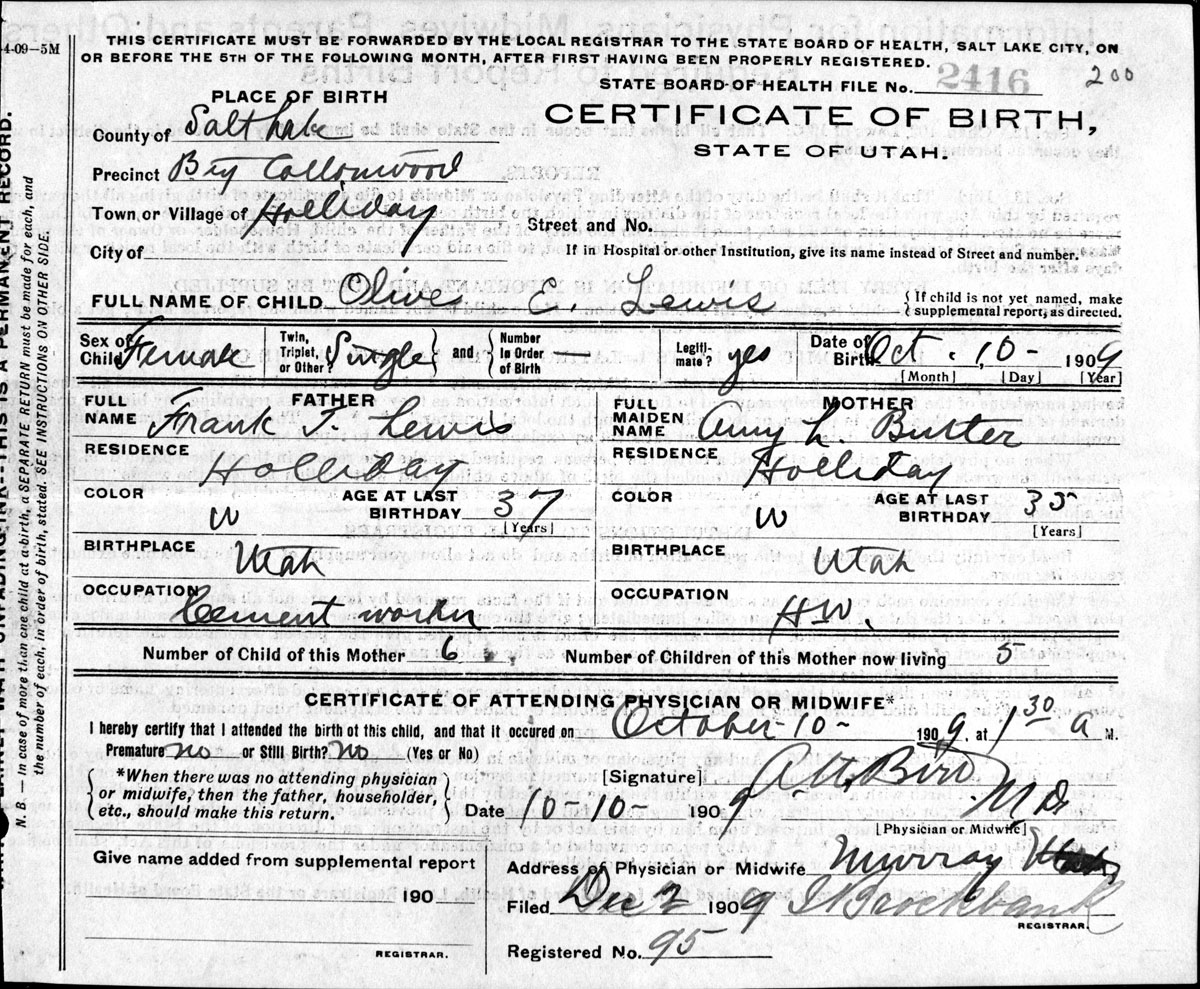 4-09-5M
THIS CERTIFICATE MUST BE FORWARDED BY THE LOCAL REGISTRAR TO THE STATE BOARD OF HEALTH, SALT LAKE CITY, ON
OR BEFORE THE 5TH OF THE FOLLOWING MONTH, AFTER FIRST HAVING BEEN PROPERLY REGISTERED.
STATE BOARD OF HEALTH FILE No. 2416
200
PLACE OF BIRTH
CERTIFICATE OF BIRTH,
STATE OF UTAH.
County of Salt Lake
Precinct Big Cottonwood
Town or Village of Holliday
Street and No.
City of
If in Hospital or other Institution, give its name instead of Street and number.
FULL NAME OF CHILD Olive E. Lewis
{ If child is not yet named, make supplemental report, as directed.
Sex of Child Female
Twin, Triplet, or Other? Single } and { Number In Order of Birth
Legitimate? yes
Date of Birth Oct. 10- 1909
[Month] [Day] [Year]
FATHER
FULL NAME Frank T. Lewis
RESIDENCE Holliday
COLOR W AGE AT LAST BIRTHDAY 37 [Years]
BIRTHPLACE Utah
OCCUPATION Cement worker
MOTHER
FULL MAIDEN NAME Amy L.
RESIDENCE Holliday
COLOR W AGE AT LAST BIRTHDAY 35 [Years]
BIRTHPLACE Utah
OCCUPATION H.W.
Number of Child of this Mother 6 Number of Children of this Mother now living 5
CERTIFICATE OF ATTENDING PHYSICIAN OR MIDWIFE*
I hereby certify that I attended the birth of this child, and that it occured on October-10- 1909, at 1 30 a M.
Premature no or Still Birth? no (Yes or No)
{ *When there was no attending physician or midwife, then the father, householder, etc., should make this return. }
[Signature] Bird M.D.
[Physician or Midwife]
Date 10-10- 1909
Give name added from supplemental report
190
REGISTRAR.
Address of Physician or Midwife Murray
Filed Dec 2 1909 Brockbank
REGISTRAR.
Registered No. 95
N. B. — In case of more than one child at a birth, a SEPARATE RETURN must be made for each, and
the number of each, in order of birth, stated. SEE INSTRUCTIONS ON OTHER SIDE.
THIS IS A PERMANENT RECORD.